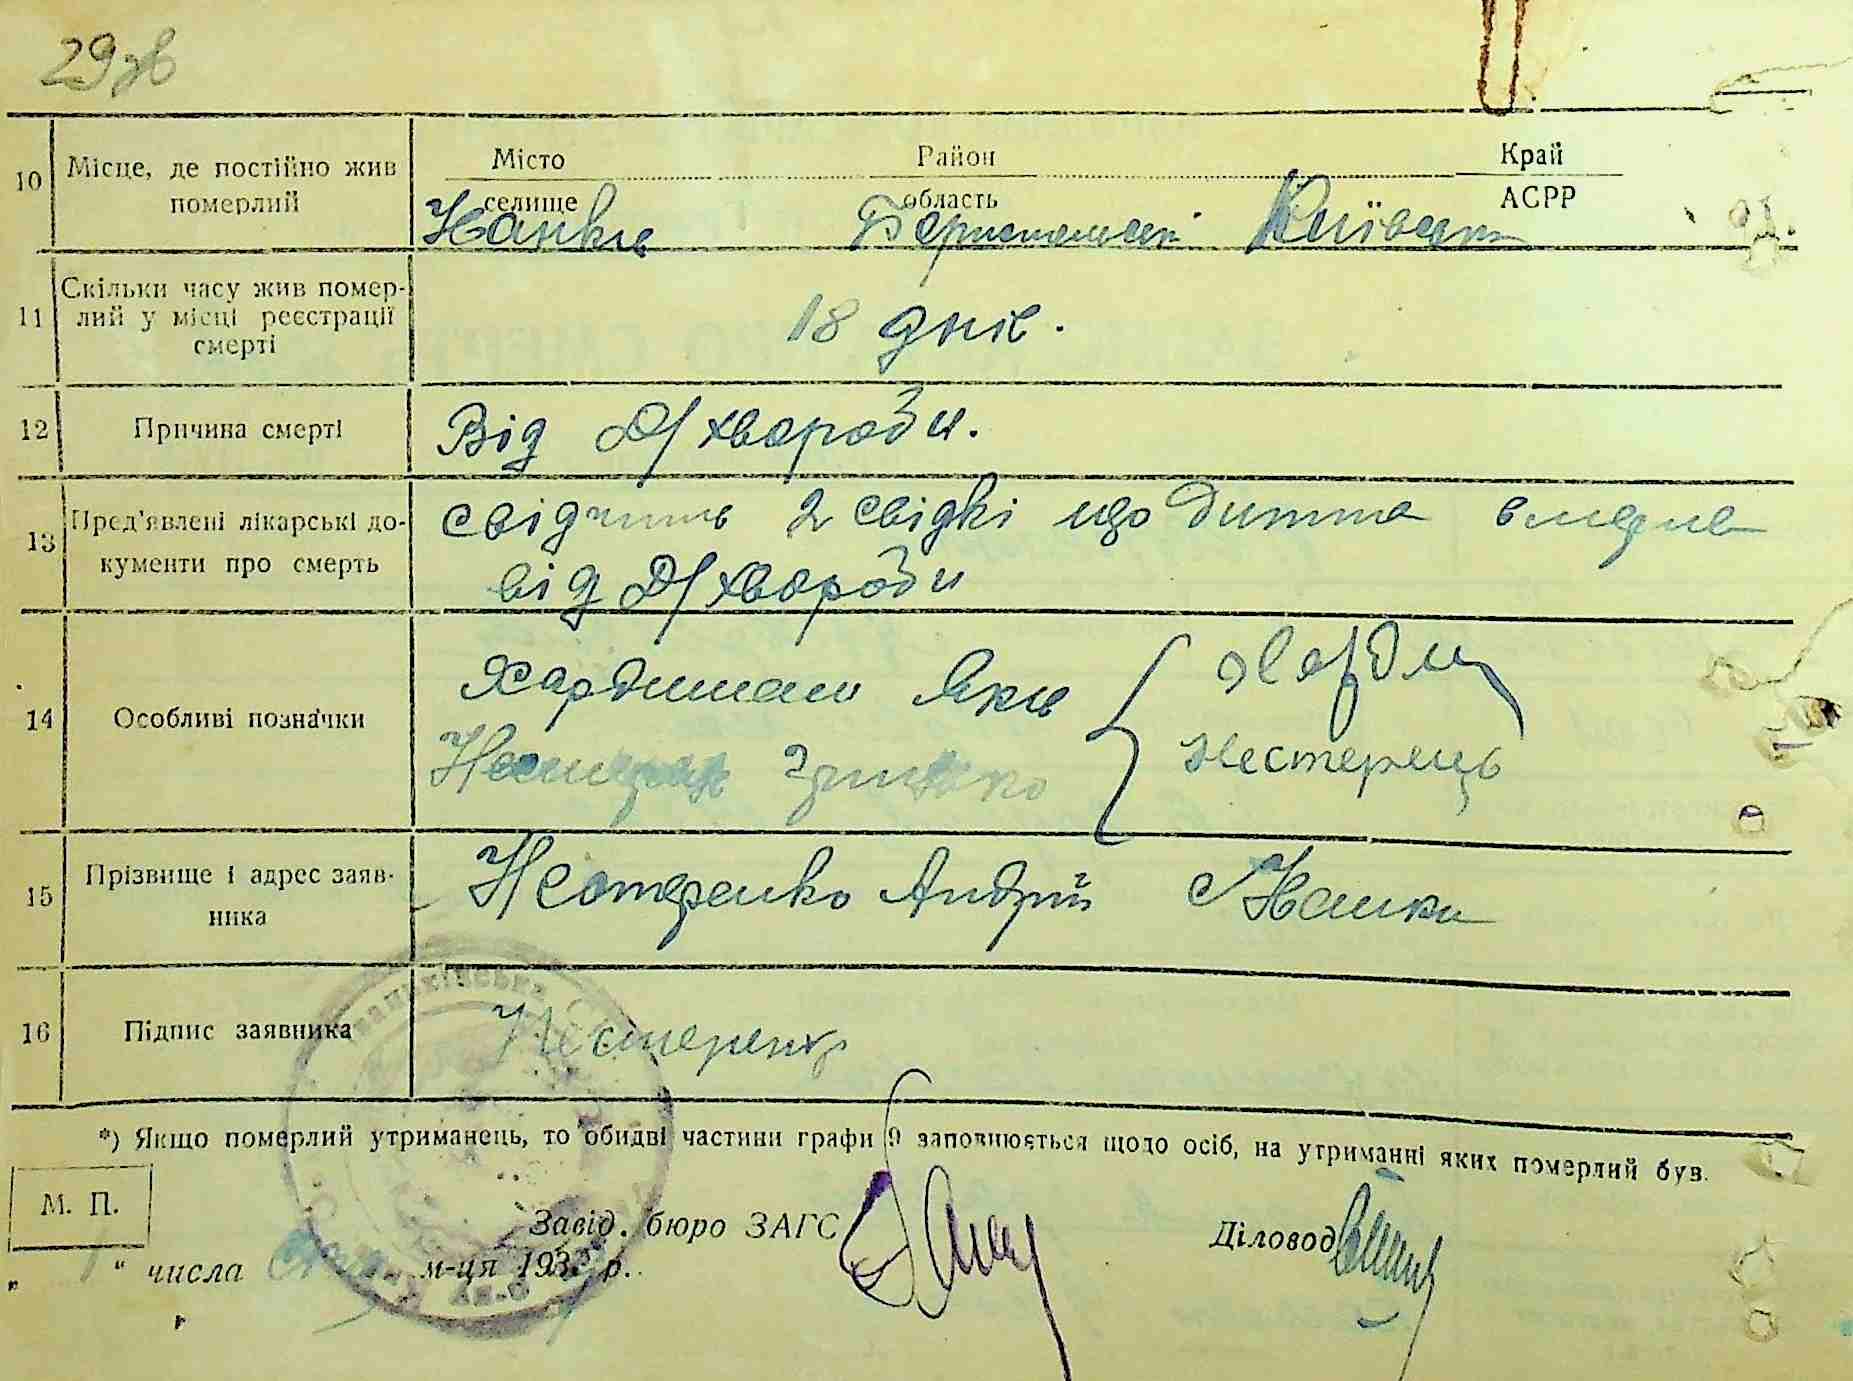 29 зв
10 Місце, де постійно жив померлий
Місто Район Край
селище область АСРР
Бориспольськ Київськ
11 Скільки часу жив помер-
лий у місці реєстрації
смерті
18 днів.
12 Причина смерті
Від Д/хвороби.
13 Пред'явлені лікарські до-
кументи про смерть
свідчить 2 свідкі що дитина вмерла
від Д/хвороби
14 Особливі позначки
Яків
Грицько
Нестерець
15 Прізвище і адрес заяв-
ника
Нестеренко Андрій
16 Підпис заявника
Нестеренко
*) Якщо померлий утриманець, то обидві частини графи 9 заповнюється щодо осіб, на утриманні яких померлий був.
М. П.
Завід. бюро ЗАГС
Діловод
„ “ числа м-ця 193 р.